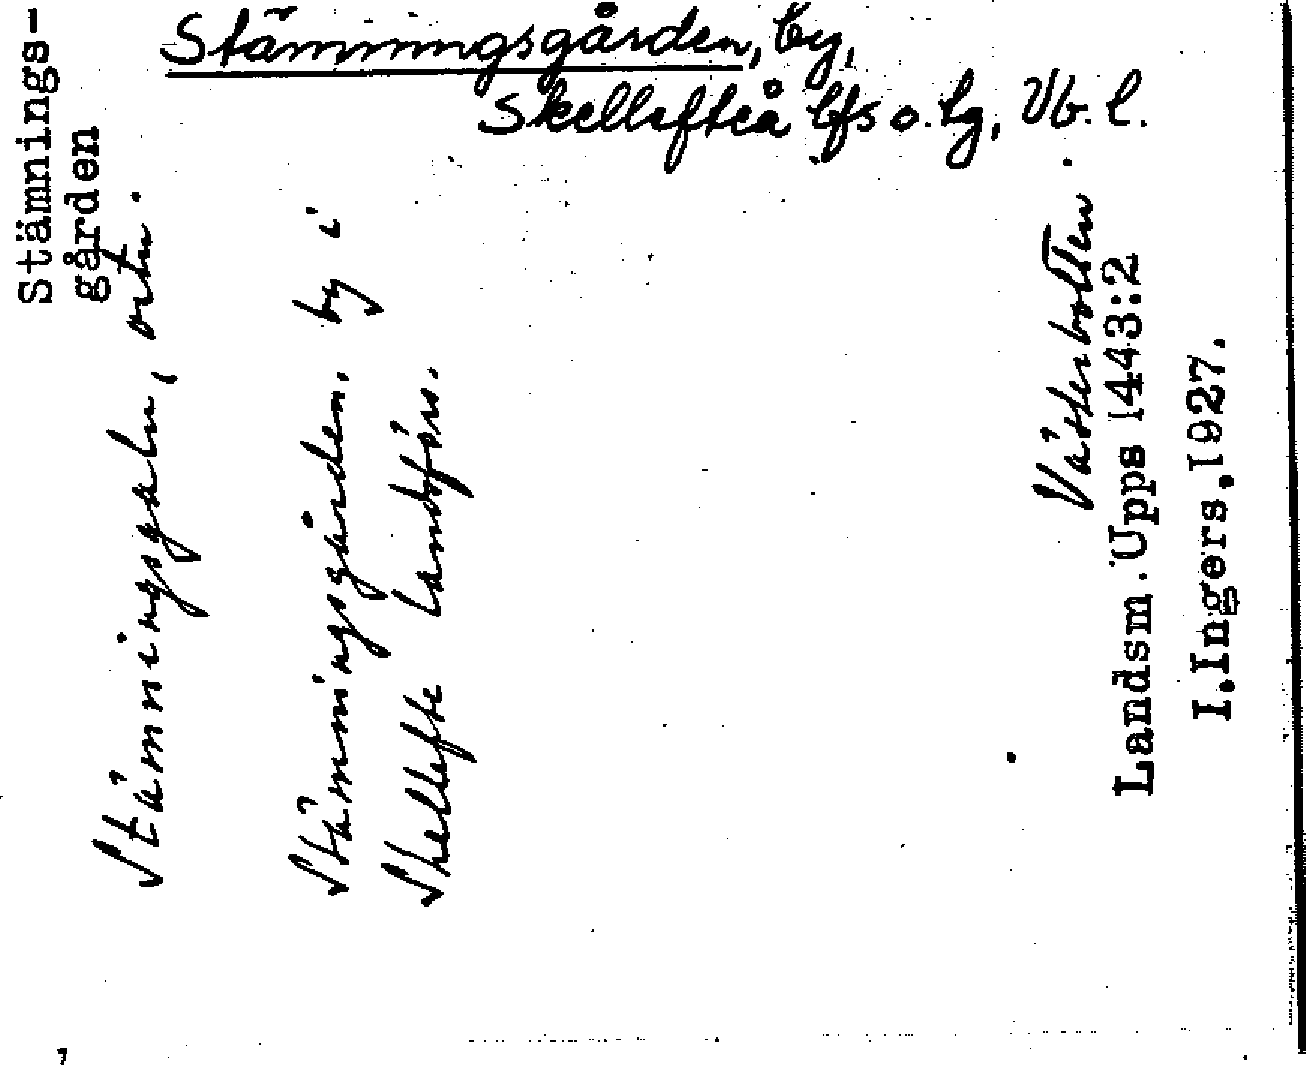 Stämningsgården, by,
Skellefteå lfs o. lg, Vb. l.
Stämnings-
gården
Stämningsgaln, ortn.
Stämningsgården, by i
Skellefte landsförs.
Västerbotten.
Landsm. Upps 1443:2
I. Ingers, 1927.